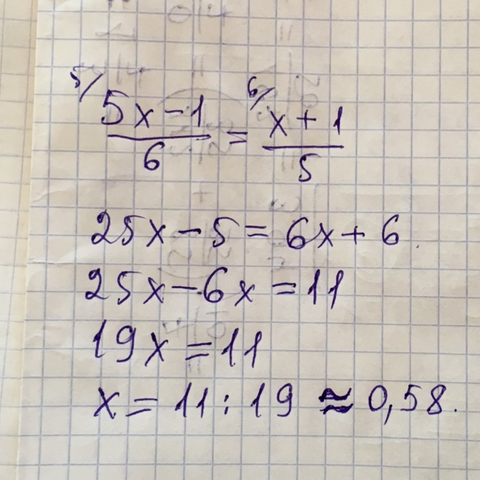 5/ 5x-1/6 = 6/ x+1/5
25x-5=6x+6.
25x-6x=11
19x=11
x=11:19≈0,58.